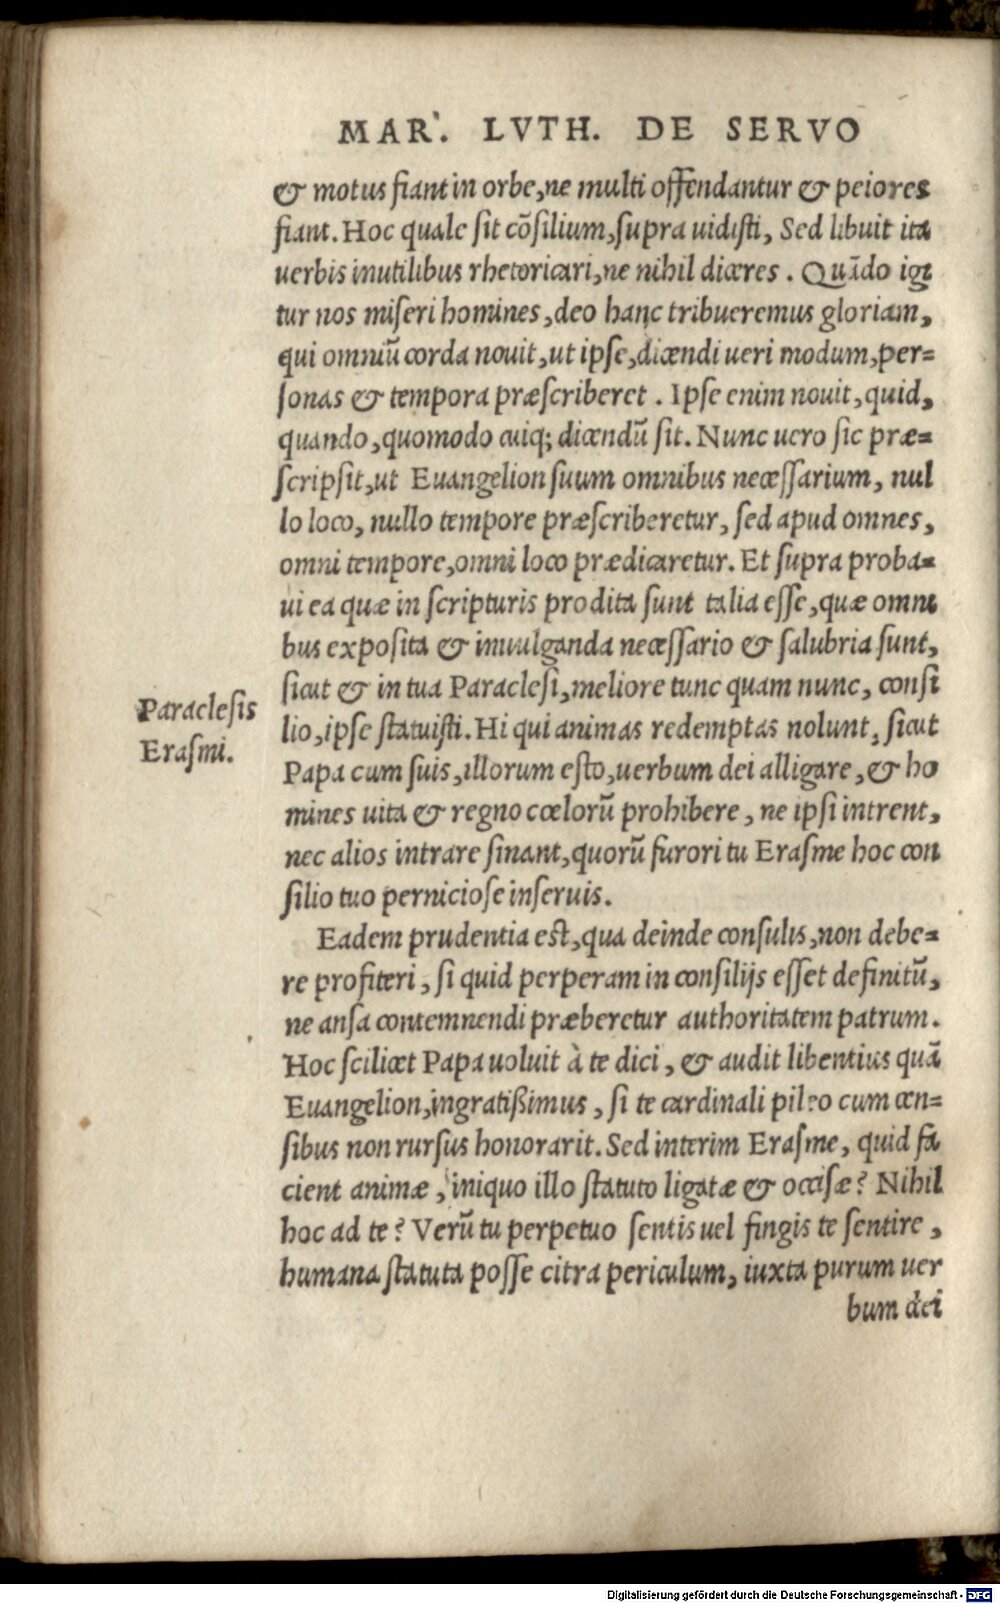 MAR. LVTH. DE SERVO
& motus fiant in orbe, ne multi offendantur & peiores
fiant. Hoc quale sit cõsilium, supra uidisti, Sed libuit ita
uerbis inutilibus rhetoricari, ne nihil diceres. Quãdo igi
tur nos miseri homines, deo hanc tribueremus gloriam,
qui omniũ corda nouit, ut ipse, dicendi ueri modum, per=
sonas & tempora præscriberet. Ipse enim nouit, quid,
quando, quomodo cuiq; dicendũ sit. Nunc uero sic præ=
scripsit, ut Euangelion suum omnibus necessarium, nul
lo loco, nullo tempore præscriberetur, sed apud omnes,
omni tempore, omni loco prædicaretur. Et supra proba=
ui ea quæ in scripturis prodita sunt talia esse, quæ omni
bus exposita & inuulganda necessario & salubria sunt,
sicut & in tua Paraclesi, meliore tunc quam nunc, consi
Paraclesis
Erasmi.
lio, ipse statuisti. Hi qui animas redemptas nolunt, sicut
Papa cum suis, illorum esto, uerbum dei alligare, & ho
mines uita & regno cœlorũ prohibere, ne ipsi intrent,
nec alios intrare sinant, quorũ furori tu Erasme hoc con
silio tuo perniciose inseruis.
Eadem prudentia est, qua deinde consulis, non debe=
re profiteri, si quid perperam in consilijs esset definitũ,
ne ansa contemnendi præberetur authoritatem patrum.
Hoc scilicet Papa uoluit à te dici, & audit libentius quã
Euangelion, ingratißimus, si te cardinali pileo cum cen=
sibus non rursus honorarit. Sed interim Erasme, quid fa
cient animæ, iniquo illo statuto ligatæ & occisæ? Nihil
hoc ad te? Verũ tu perpetuo sentis uel fingis te sentire,
humana statuta posse citra periculum, iuxta purum uer
bum dei
Digitalisierung gefördert durch die Deutsche Forschungsgemeinschaft - DFG